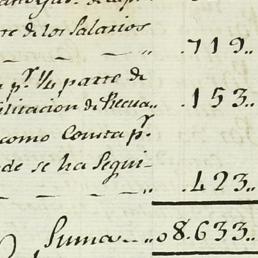 re de los Salarios
.719..
pr. ¼ parte de
ilitacion de Recua.. .153..
como Consta pr.
de se ha Segui-
.423..
Suma...08.633..